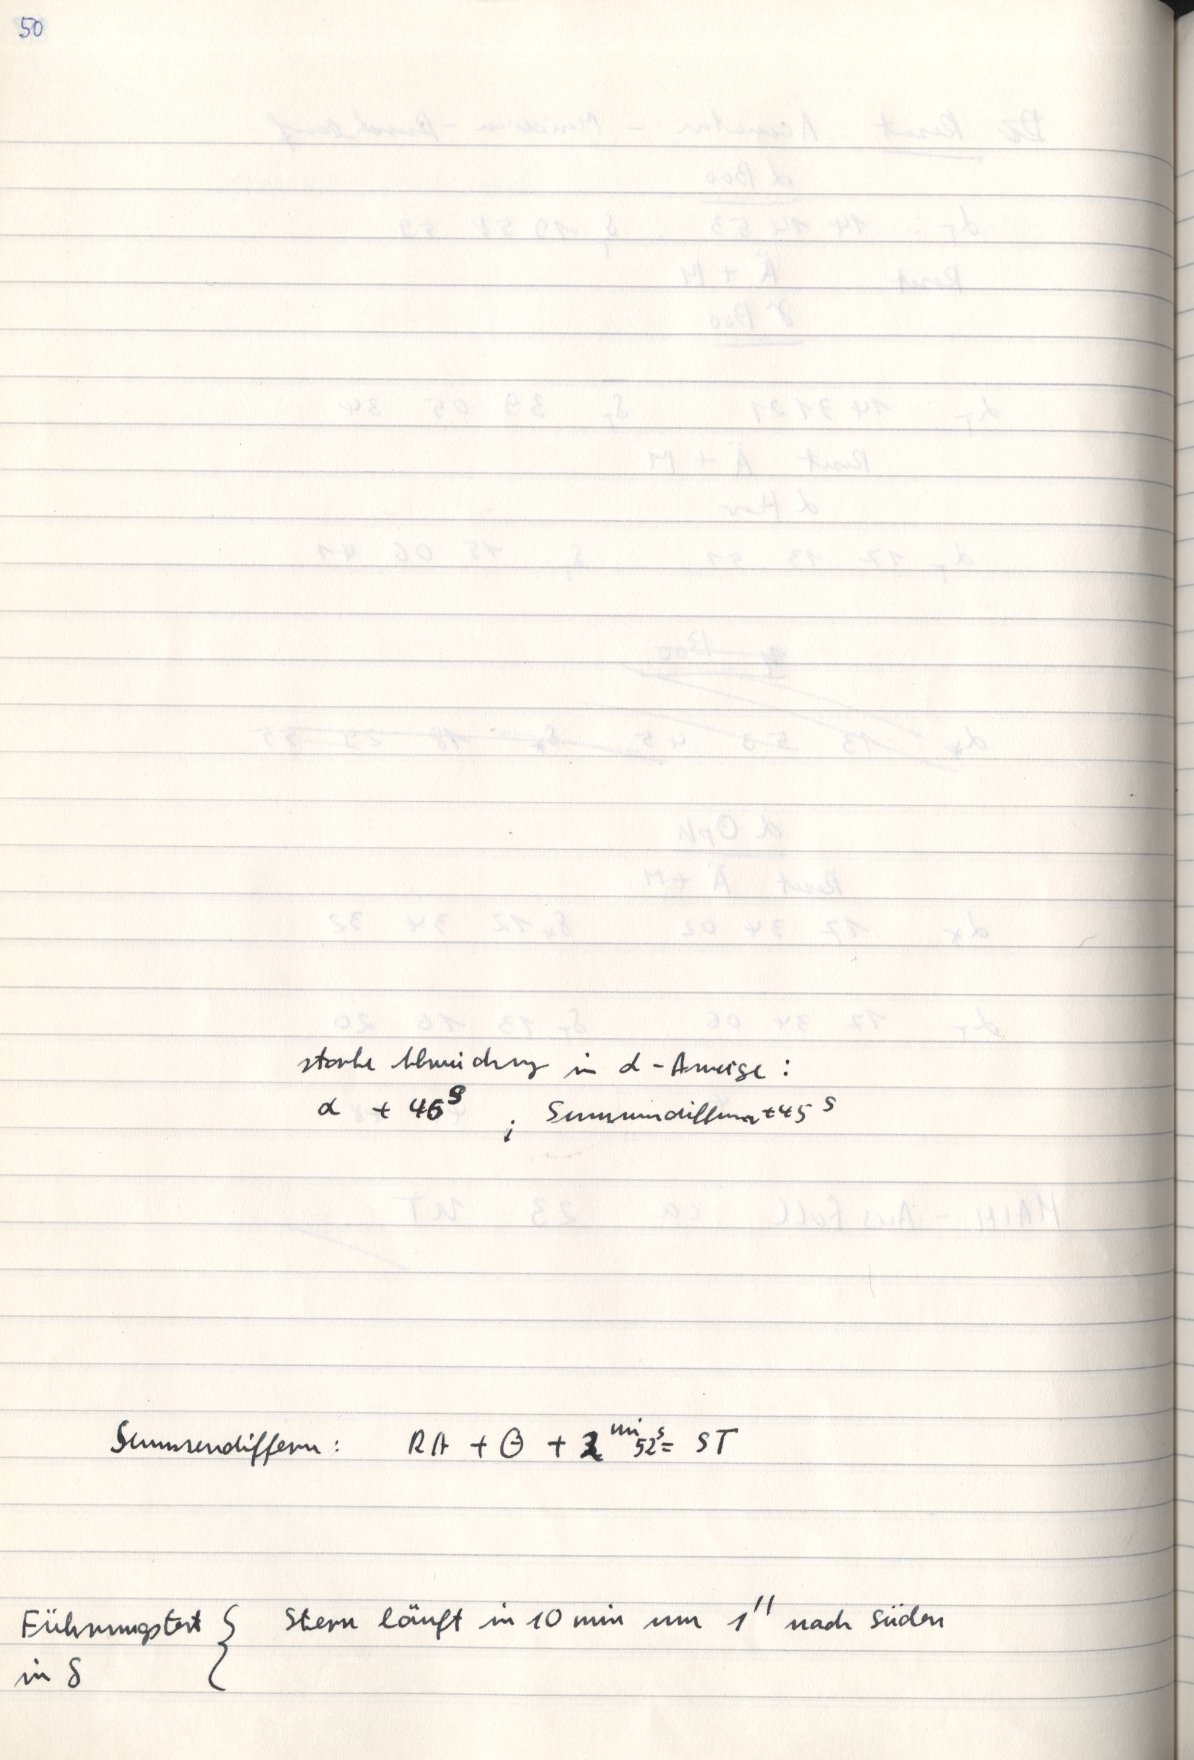 50
starke Abweichung in α-Anzeige:
α + 46ˢ ; Summendifferenz +45ˢ
Summendifferenz: RA + Θ + 2ᵐⁱⁿ 52ˢ = ST
Führungstest { Stern läuft in 10 min um 1" nach Süden
in δ